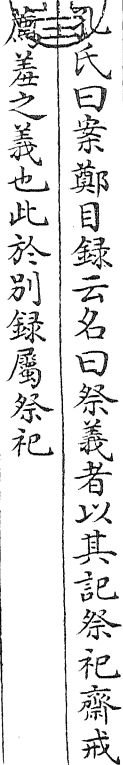 孔氏曰案鄭目録云名曰祭義者以其記祭祀齋戒
薦羞之義也此於别録屬祭祀